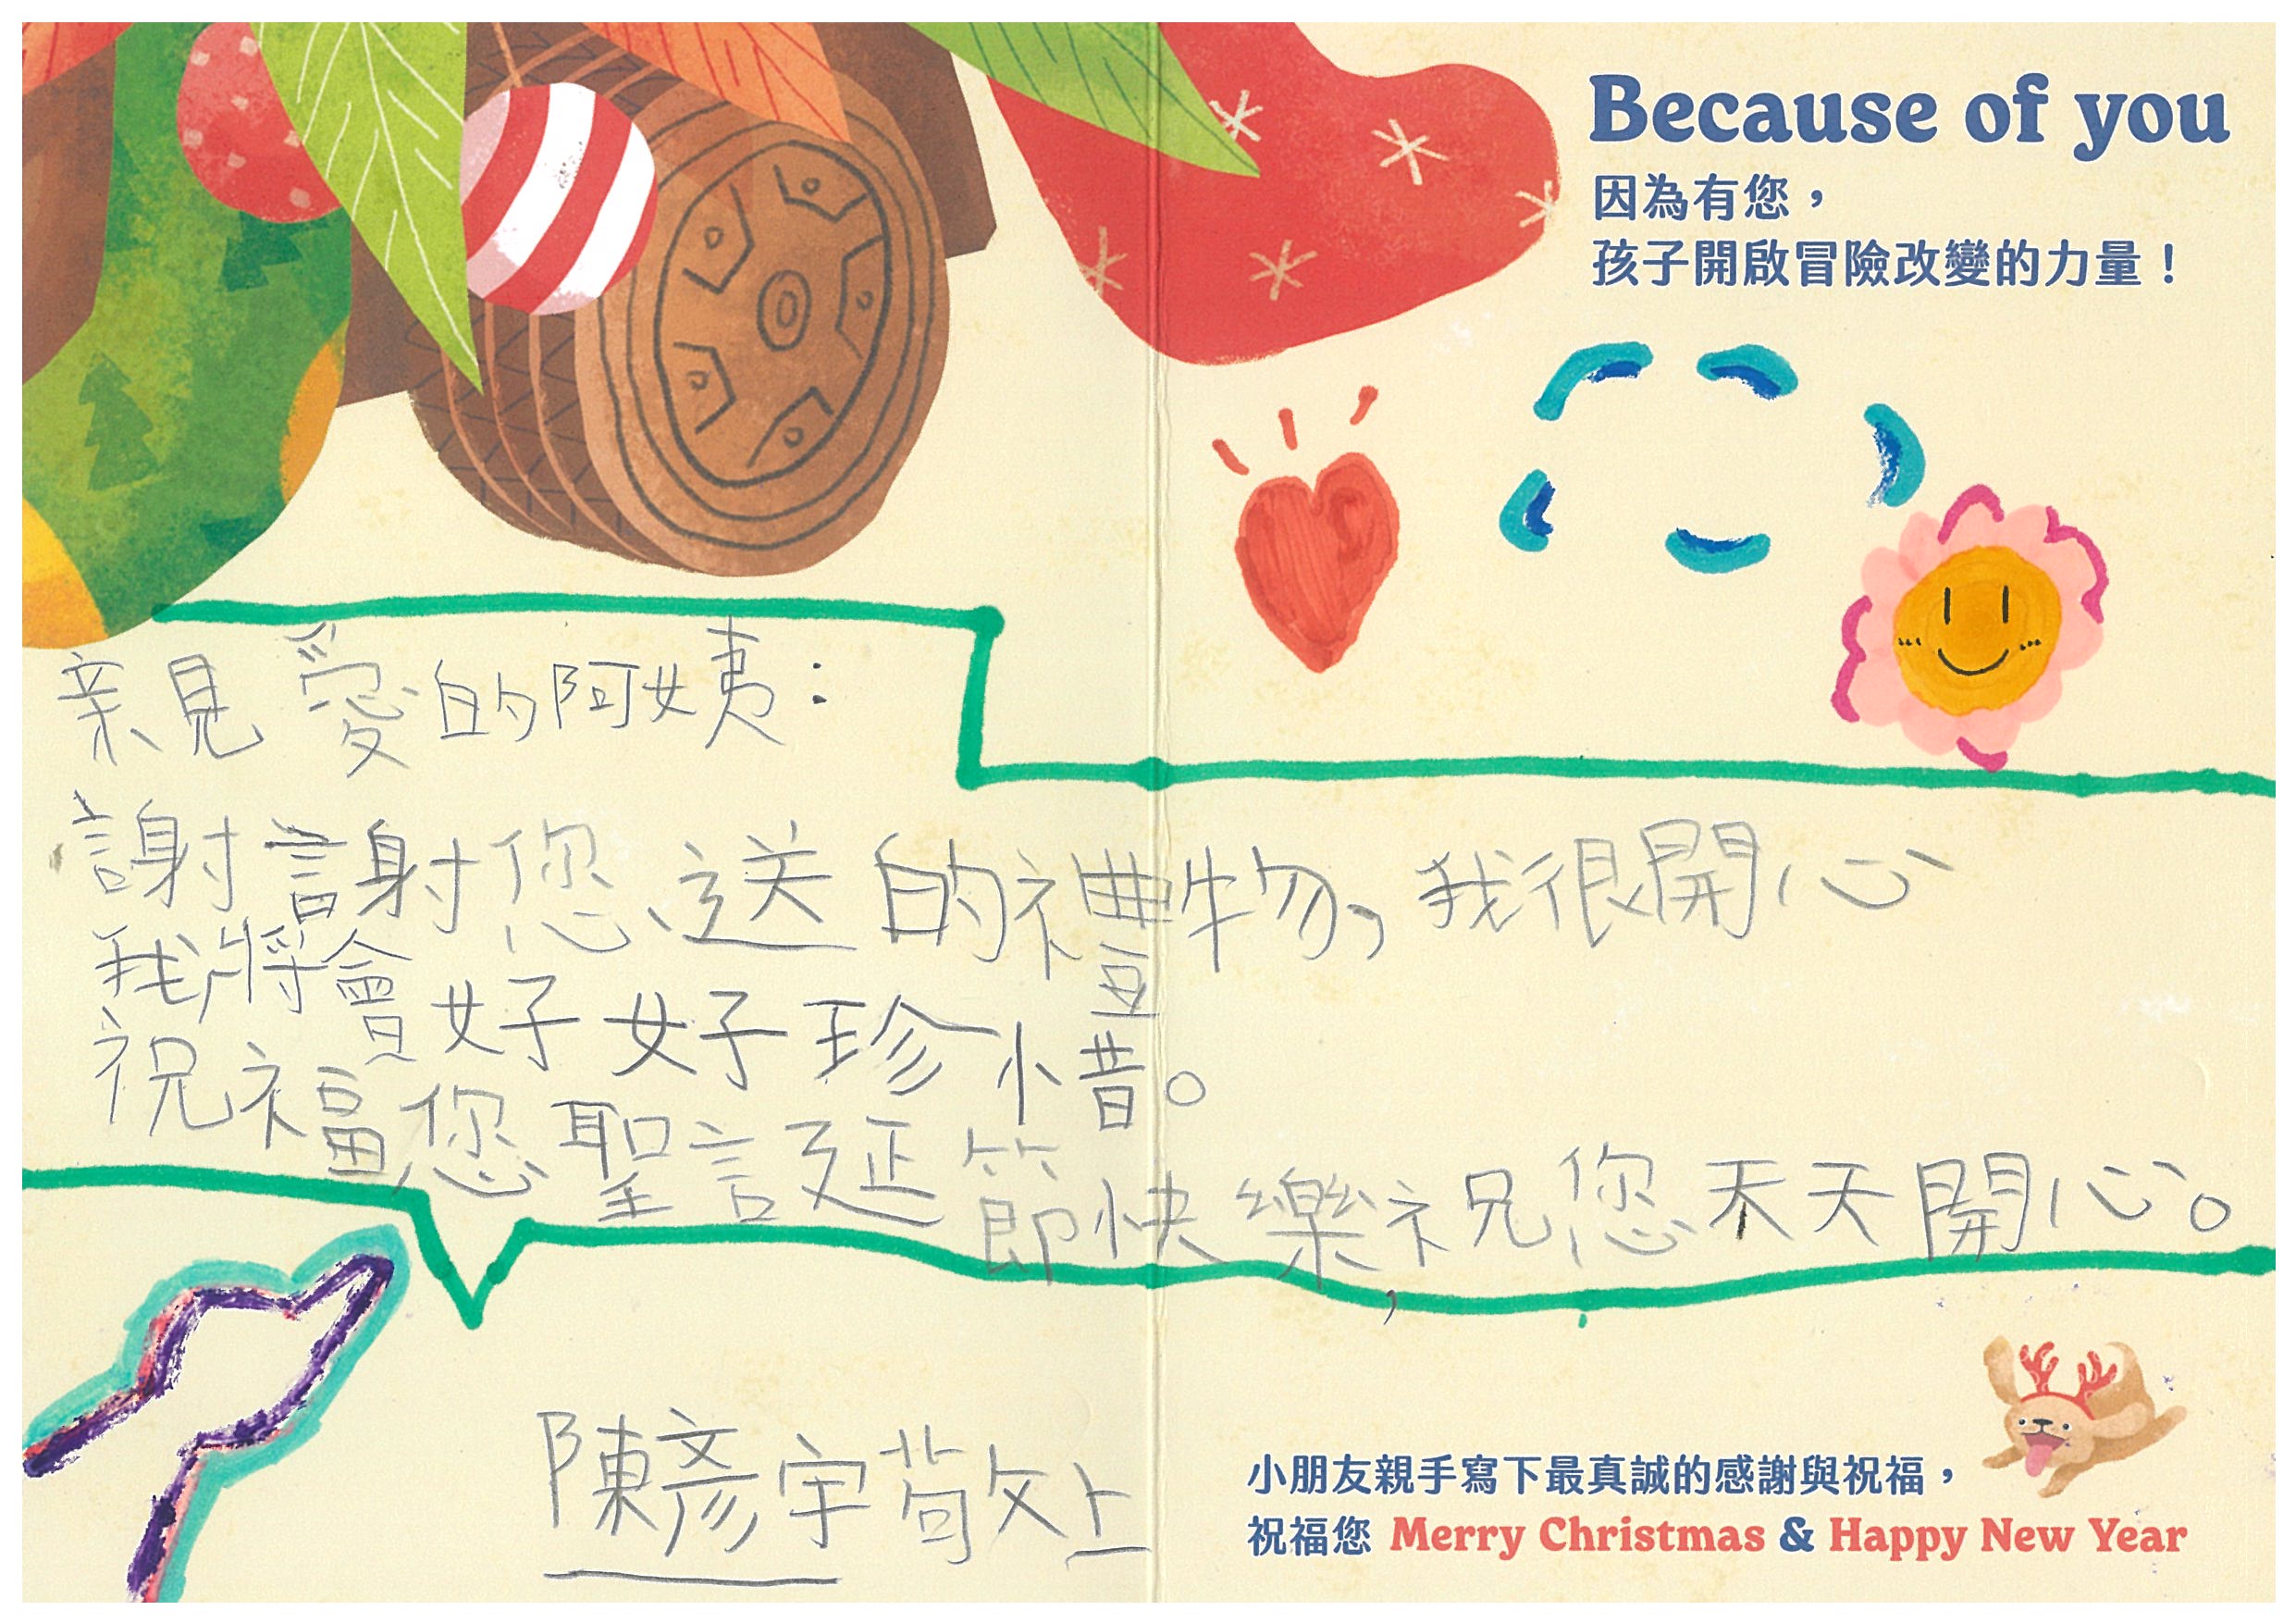 Because of you
因為有您，
孩子開啟冒險改變的力量！
親愛的阿姨：
謝謝您送的禮物，我很開心
我將會好好珍惜。
祝福您聖誕節快樂，祝您天天開心。
陳彥宇敬上
小朋友親手寫下最真誠的感謝與祝福，
祝福您 Merry Christmas & Happy New Year